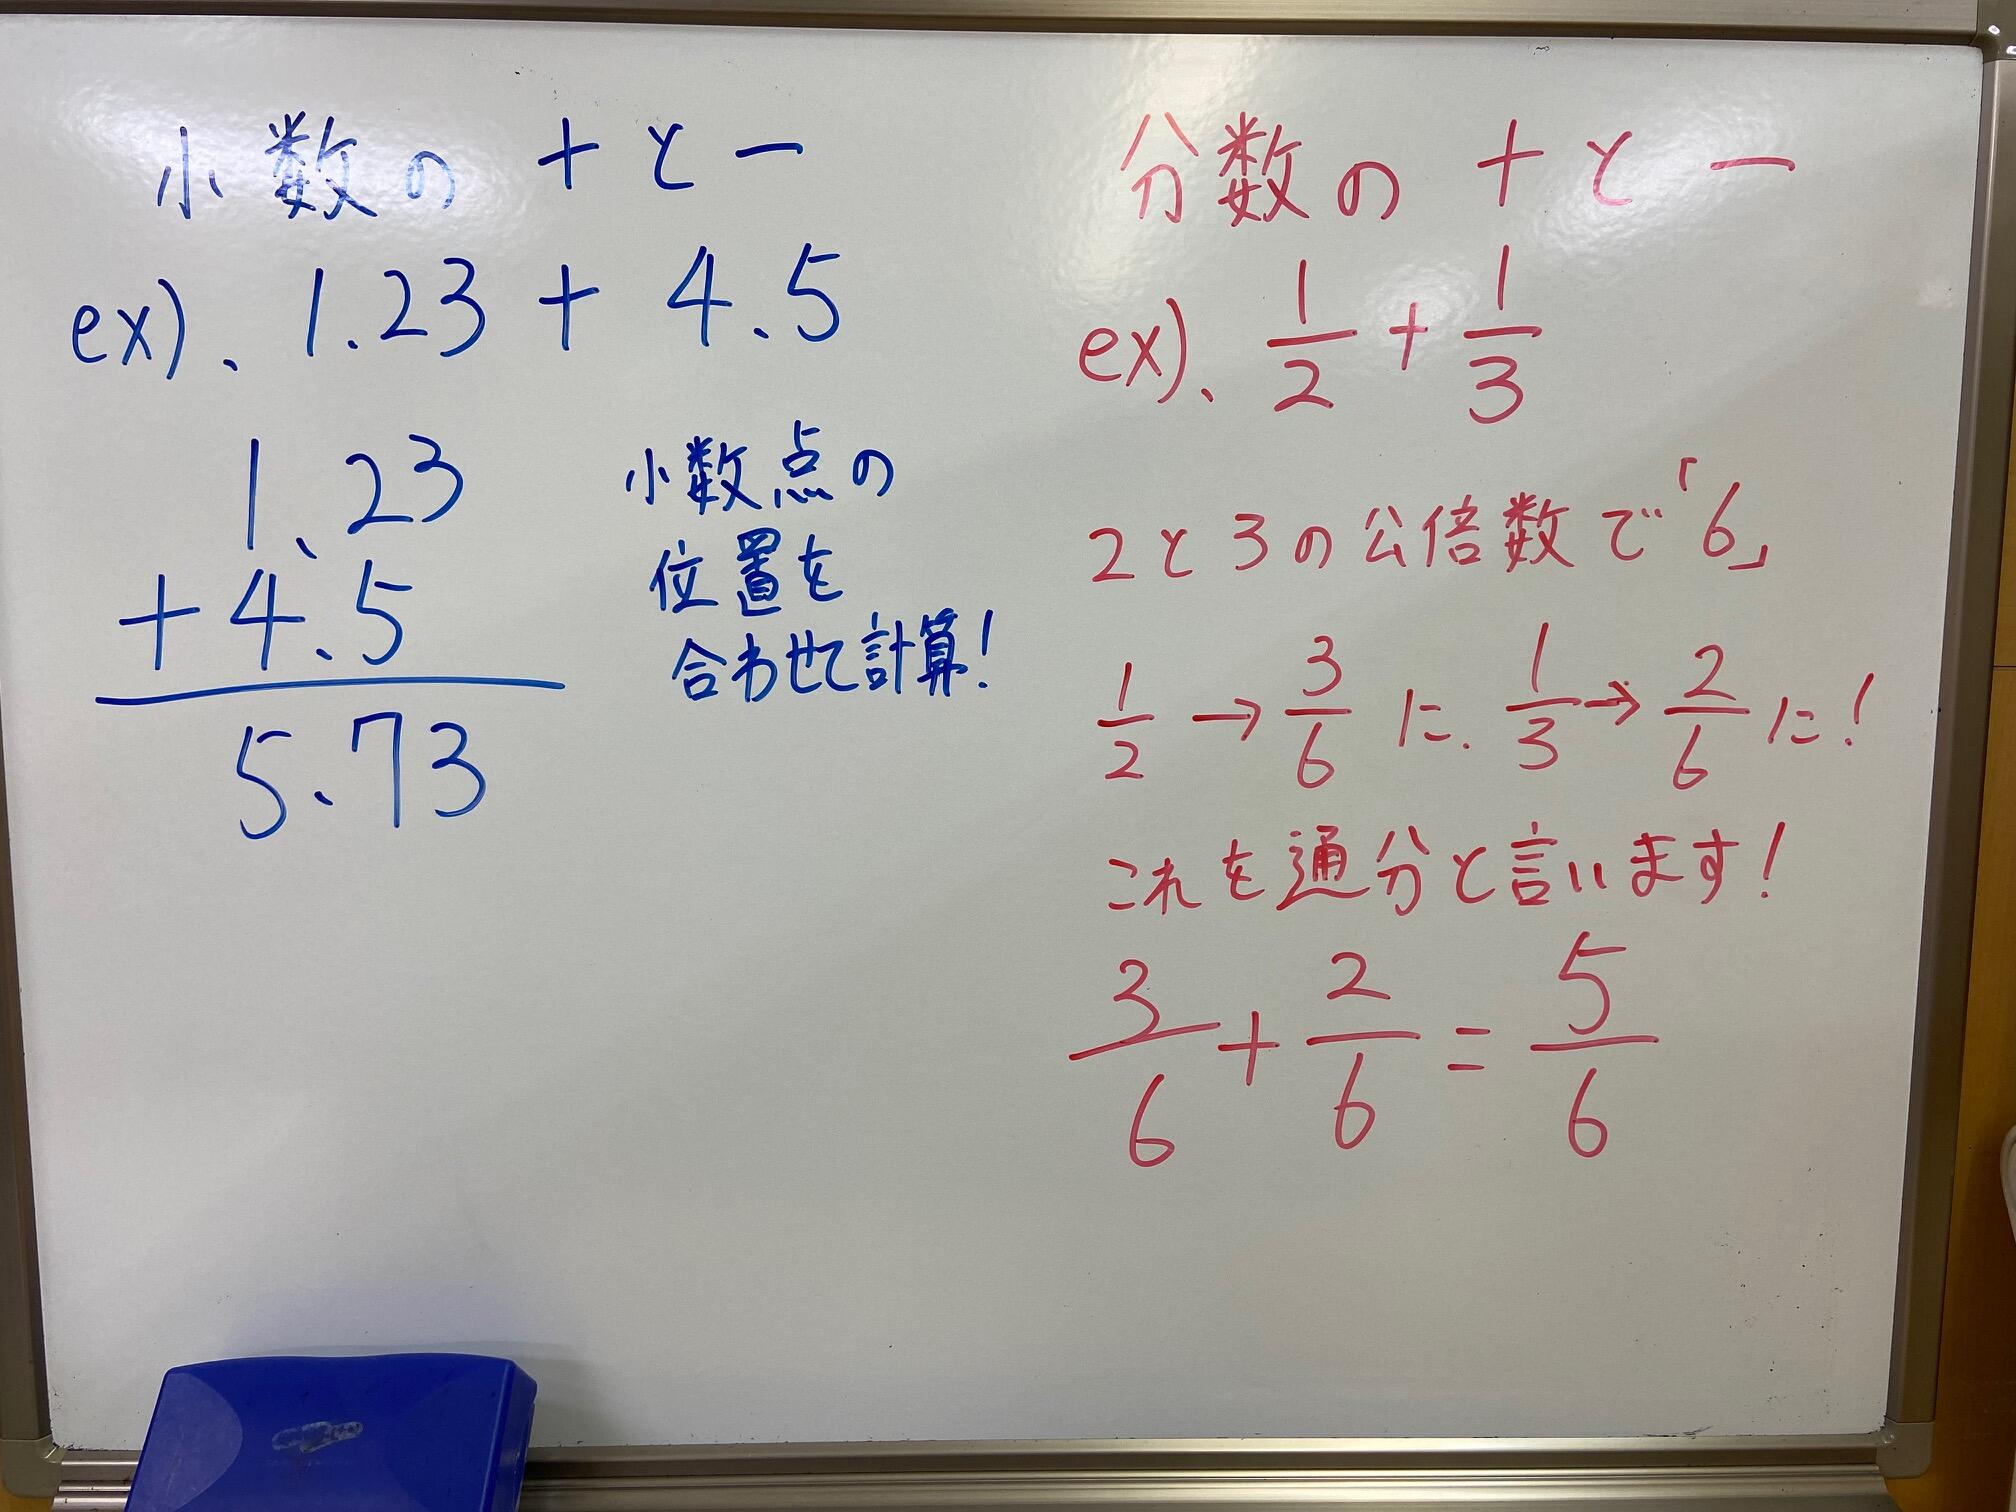 小数の + と −
ex)、1.23 + 4.5
1.23
+ 4.5
5.73
小数点の
位置を
合わせて計算!
分数の + と −
ex)、1/2 + 1/3
2と3の公倍数で「6」
1/2 → 3/6 に、1/3 → 2/6 に!
これを通分と言います!
3/6 + 2/6 = 5/6